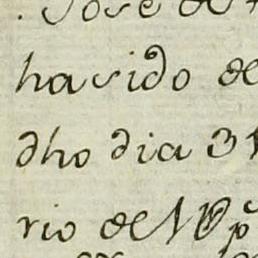 . Jose de
havido de
dho dia 31
rio de